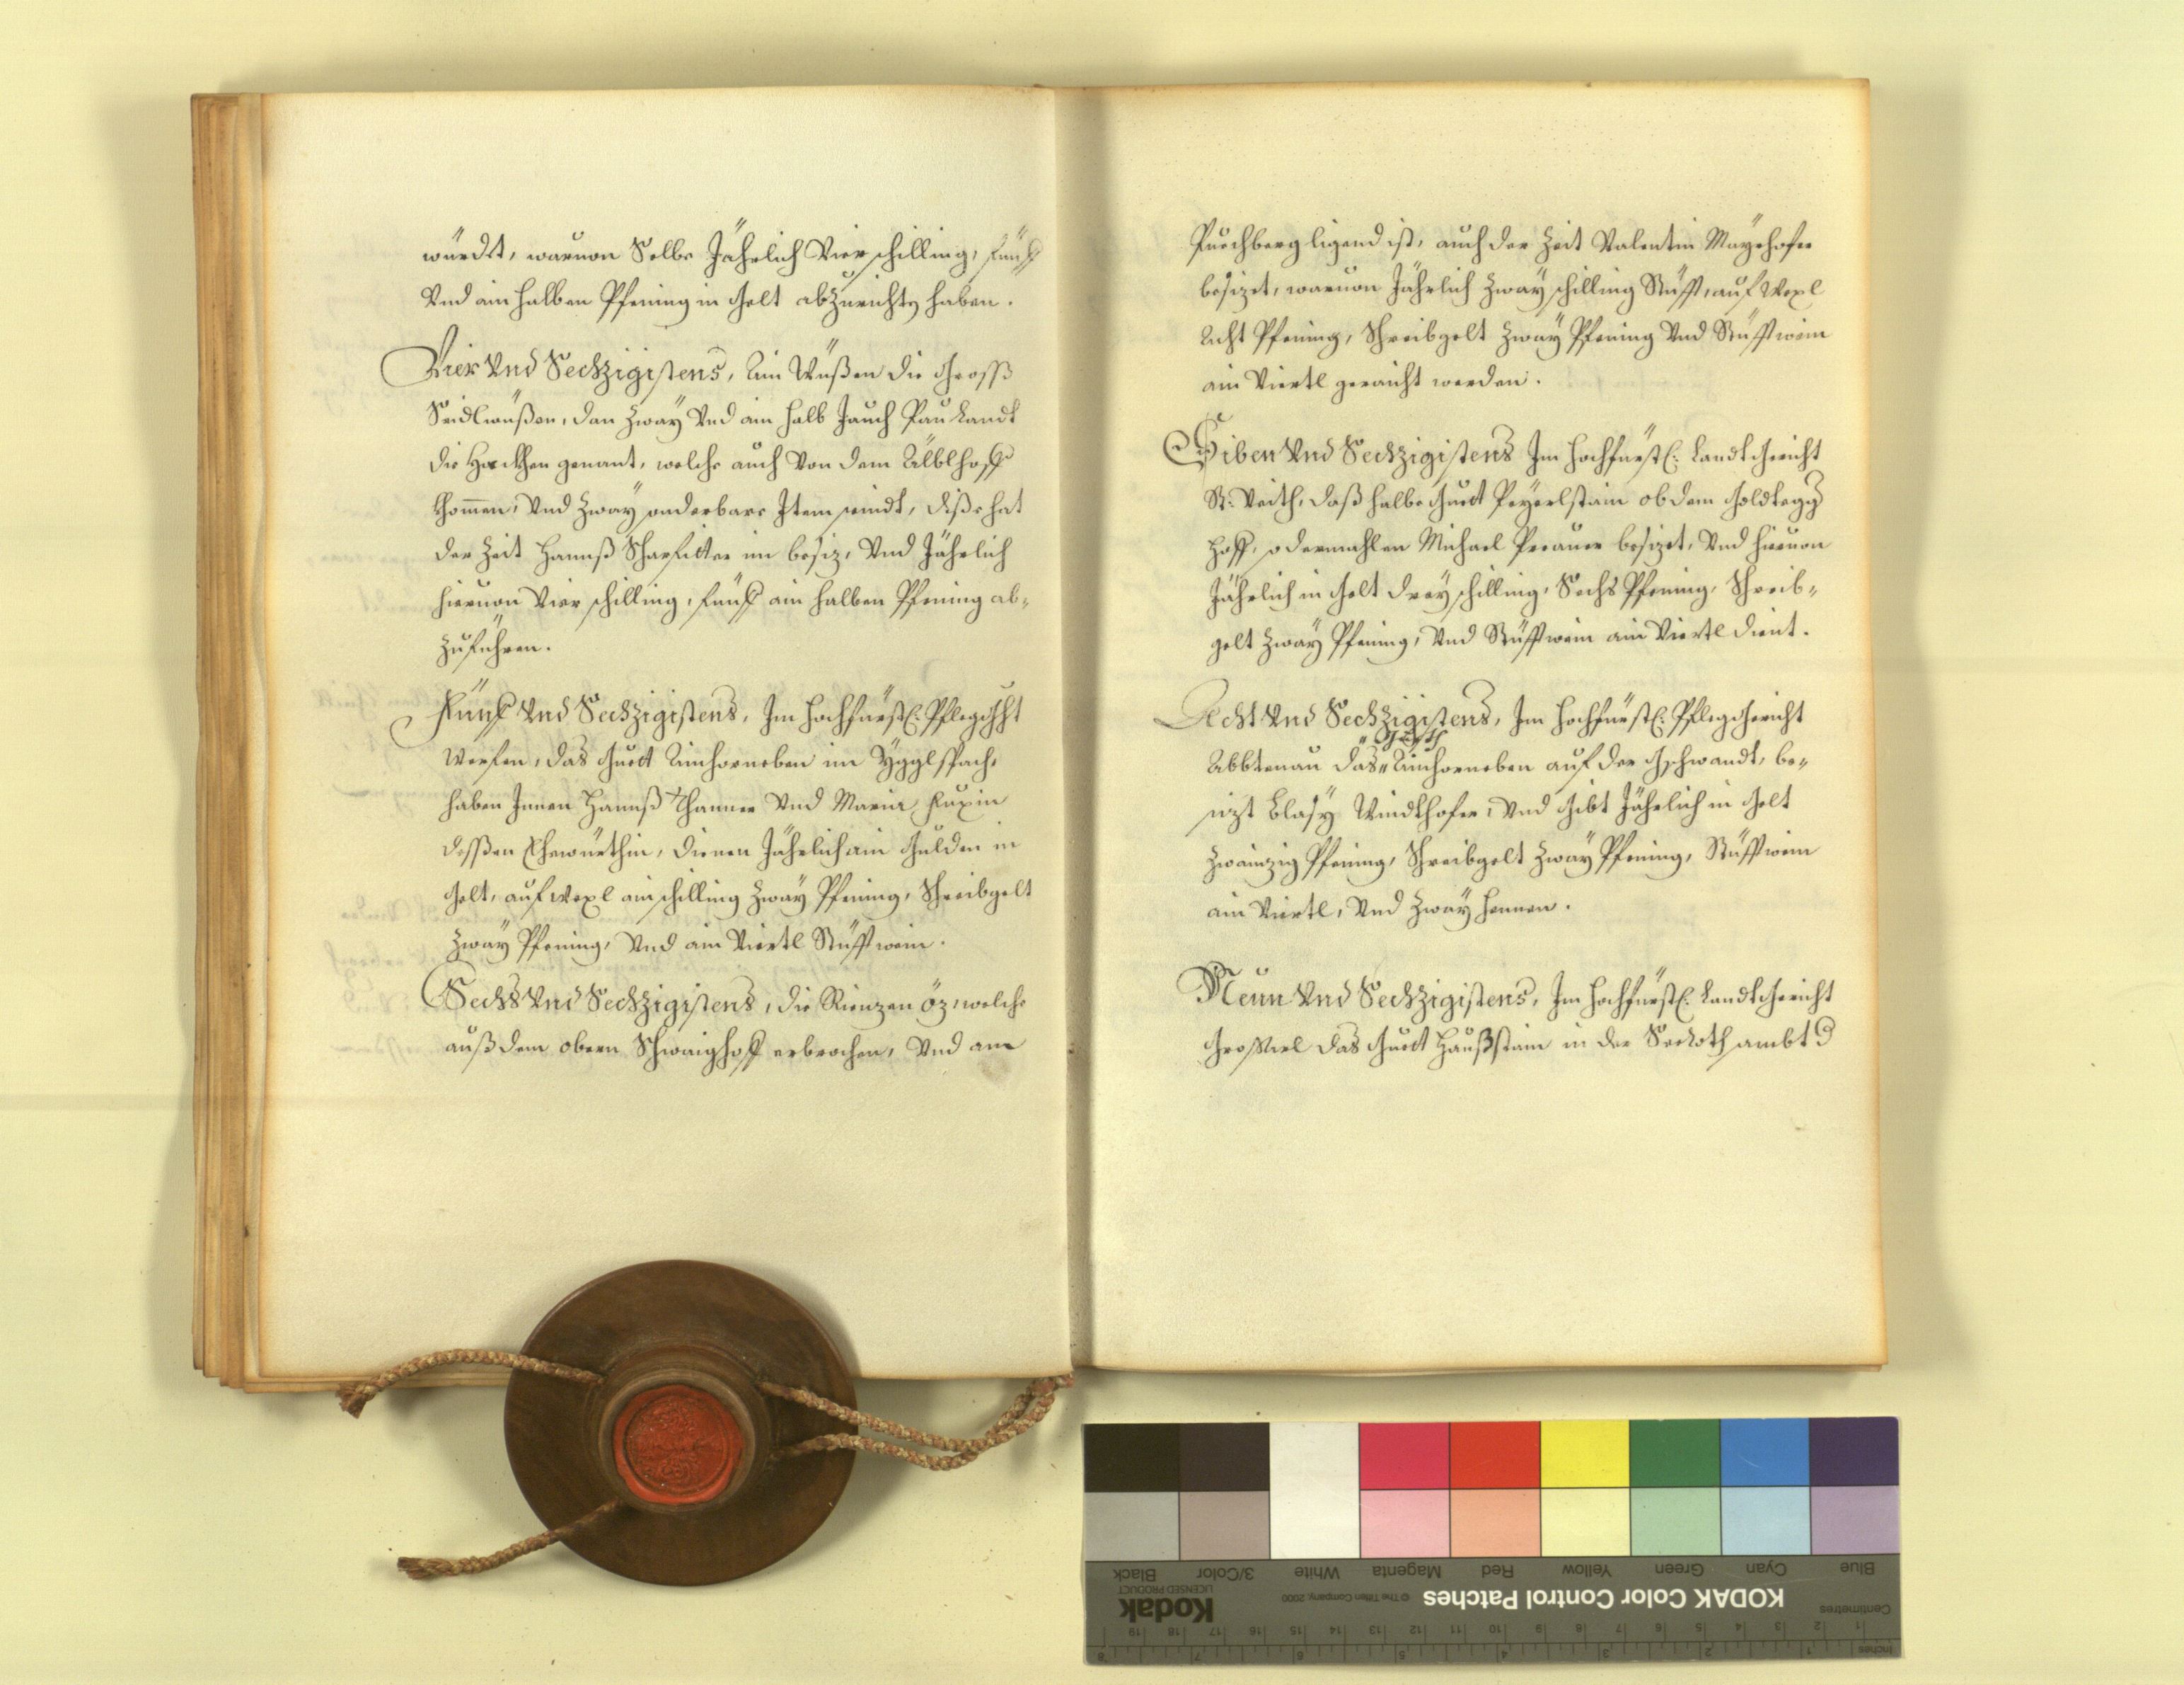 würdt, waruon Selbe Jährlich Vier schilling, fünf
Vnd ain halben Pfening in Gelt abzurichten haben.
Vier Vnd Sechzigistens, Ain Wüßen die Gross
Seidlwüßen, dan Zway Vnd ain halb Jauch Pau Landt
die genant, welche auch Von dem Älblhoff
khomen, Vnd Zway sonderbare Item seindt, diße hat
der Zeit Hannß Scharfitter im besiz, Vnd Jährlich
hieruon Vier schilling, fünf ain halben Pfening ab-
zuführen.
Fünf Vnd Sechzigistens, Im Hochfürstl: Pfleggricht
Werfen, das Guett Ainhorneben im
haben Innen Hannß Thanner Vnd Maria Fuxin
dessen Ehewürthin, dienen Jährlich ain Gulden in
Gelt, auf Wexl ain schilling Zway Pfening, Schreibgelt
Zway Pfening, Vnd ain Viertl Stüfftwein.
Sechs Vnd Sechzigistens, die Rienzen Öz, welche
auß dem obern Schwaighoff erbrochen, Vnd am
Puechberg ligend ist, auch der Zeit Valentin Mayrhofer
besizet, waruon Jährlich Zway schilling Stüfft, auf Wexl
Acht Pfening, Schreibgelt Zway Pfening Vnd Stüfftwein
ain Viertl geraicht werden.
Siben Vnd Sechzigistens Im Hochfürstl: Landtgericht
St: Veith, daß halbe Guett Peyerlstain ob dem Goldtegg
Hoff, so dermahlen Michael besizet, Vnd hieruon
Jährlich in Gelt drey schilling, Sechs Pfening, Schreib-
gelt Zway Pfening, Vnd Stüfftwein ain Viertl dient.
Acht Vnd Sechzigistens, Im Hochfürstl: Pfleggericht
Guett
Abbtenau das Ainhorneben auf der Gschwandt, be-
sizt Blasy Windthofer, Vnd Gibt Jährlich in Gelt
Zwainzig Pfening, Schreibgelt Zway Pfening, Stüfftwein
ain Viertl, Vnd Zway Hennen.
Neun Vnd Sechzigistens, Im Hochfürstl: Landtgericht
Großarl das Guett Haußstain in der ambt
KODAK Color Control Patches
Kodak
LICENSED PRODUCT
© The Tiffen Company, 2000
Blue Cyan Green Yellow Red Magenta White 3/Color Black
Centimetres
Inches
1 2 3 4 5 6 7 8 9 10 11 12 13 14 15 16 17 18 19
1 2 3 4 5 6 7 8